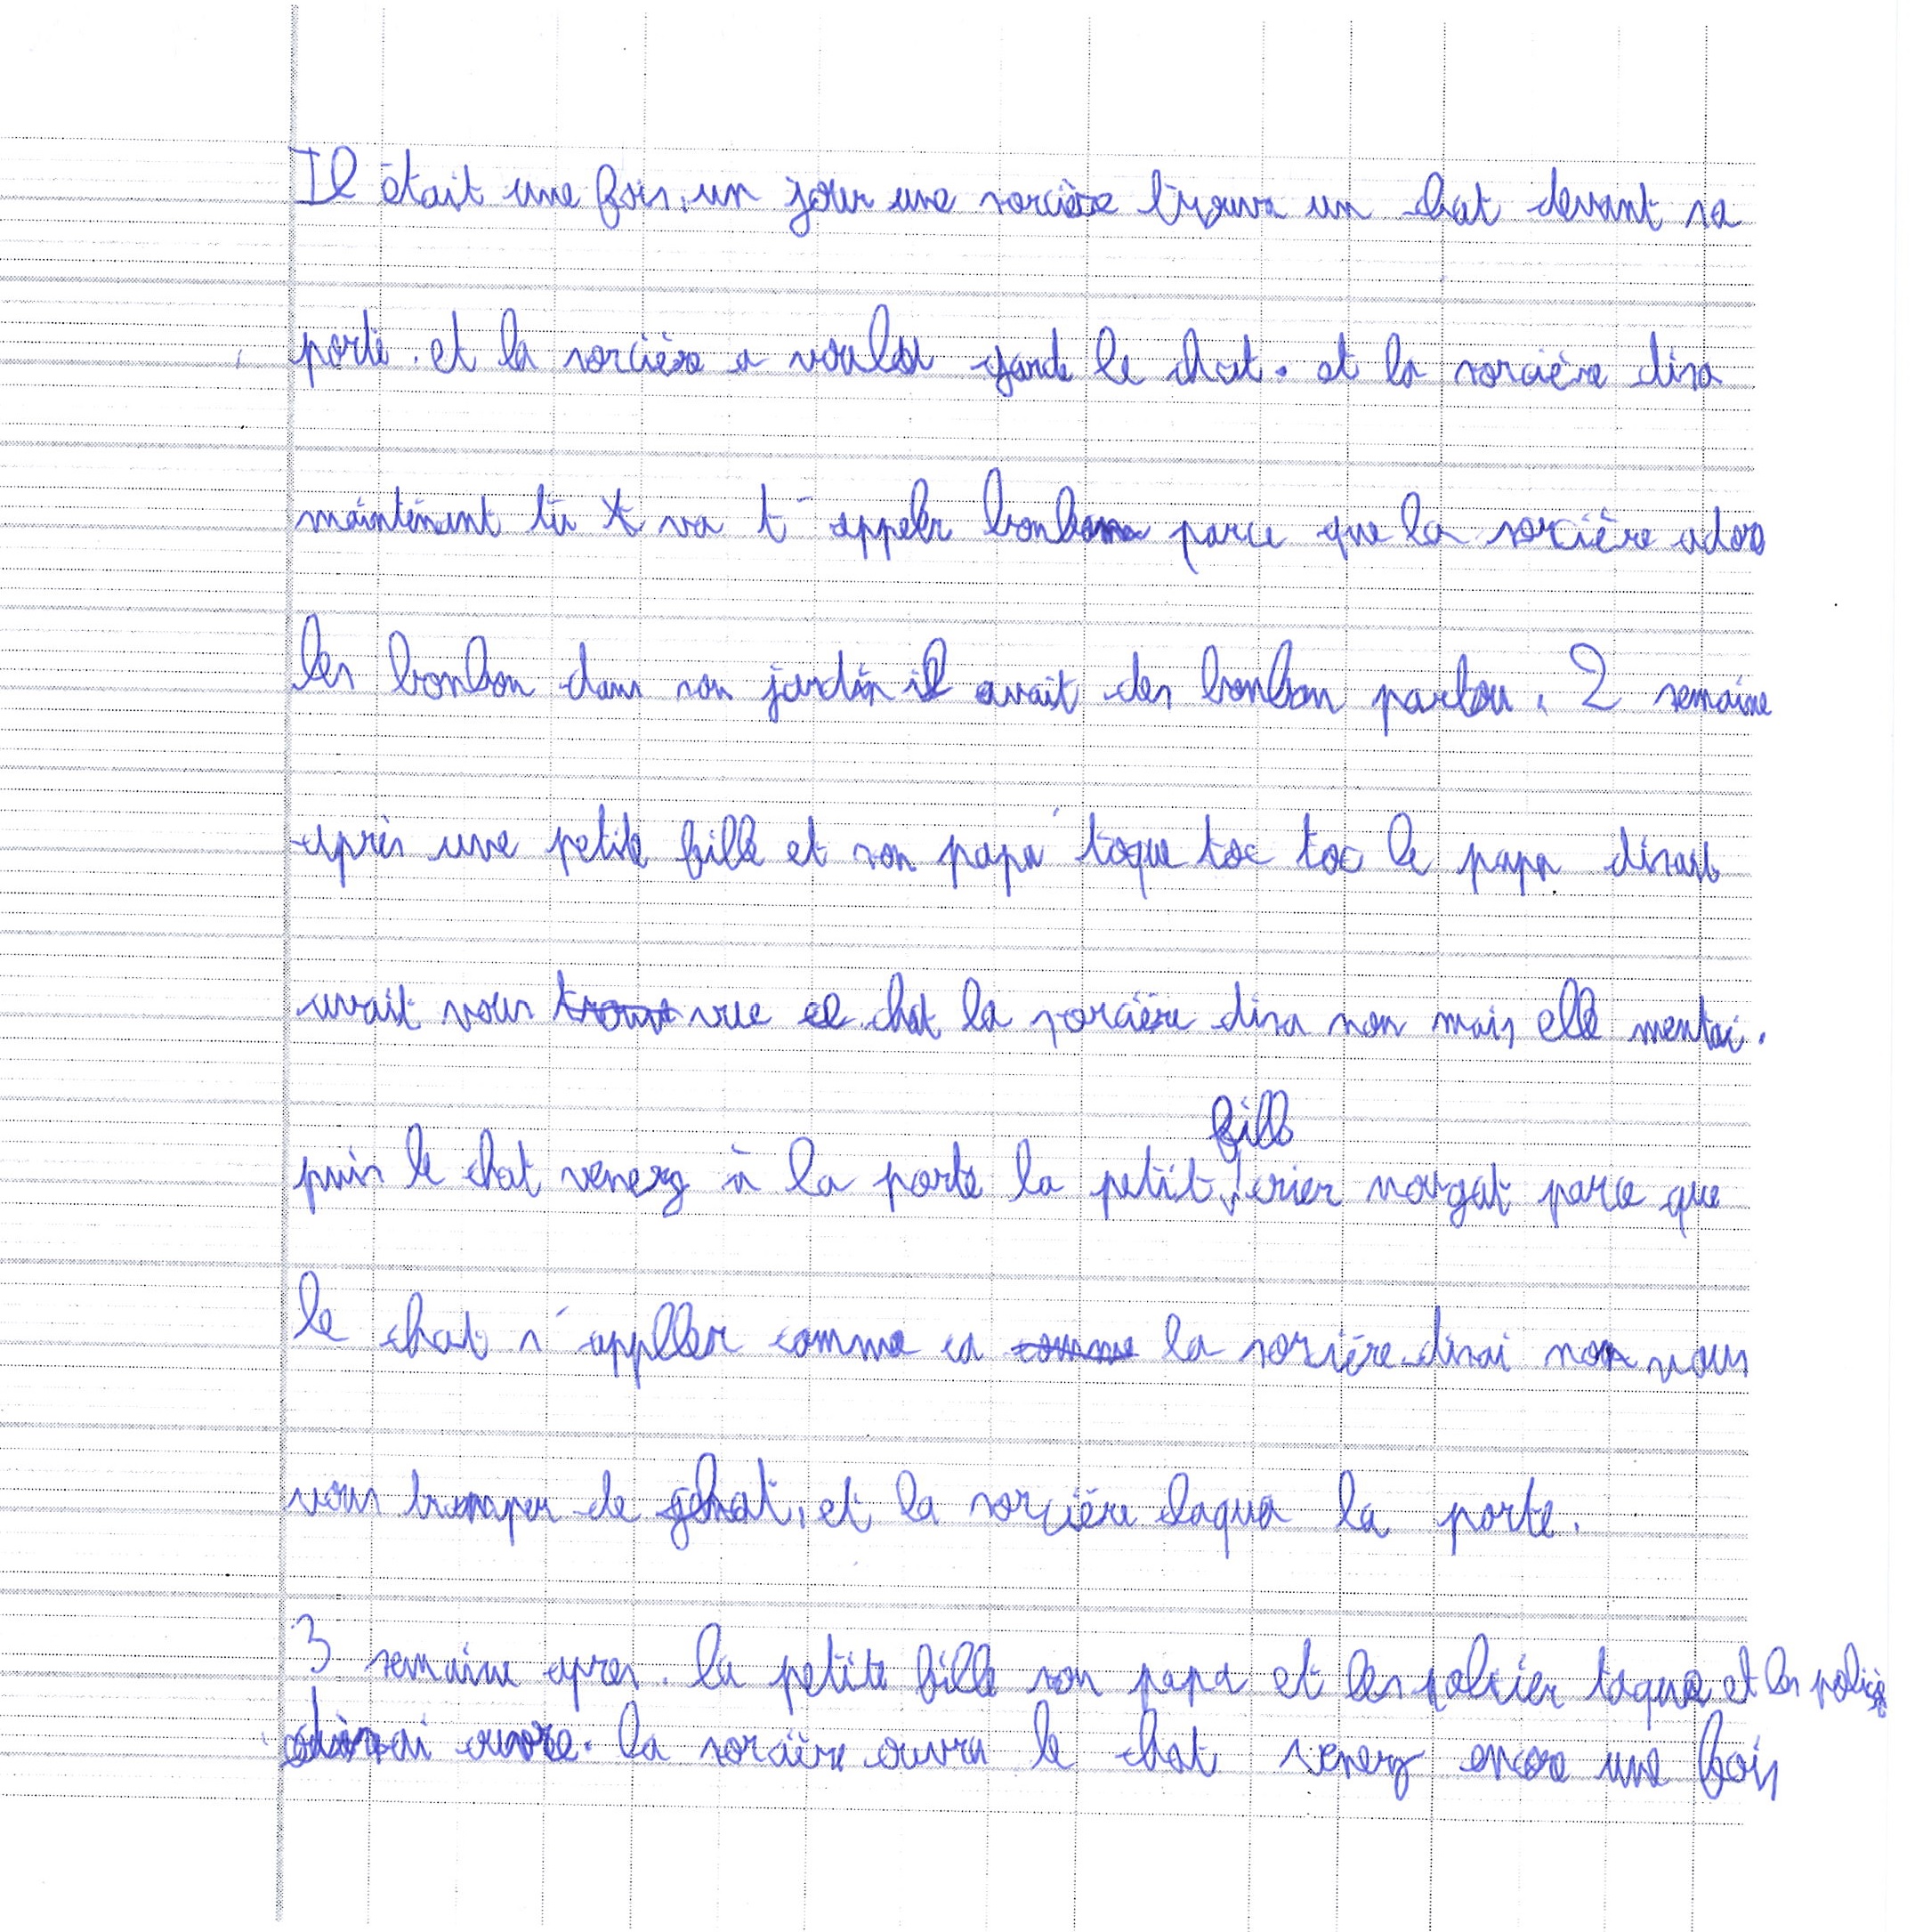 Il était une fois, un jour une sorcière trouva un chat devant sa
porte. et la sorcière a voulu garde le chat. et la sorcière disa
maintenant tu va t'appeler bonbon parce que la sorcière adore
les bonbon dans son jardin il avait des bonbon partou. 2 semaine
après une petite fille et son papa toque toc toc le papa disait
avait vous vue ce chat la sorcière disa non mais elle mentai.
puis le chat venerz à la porte la petit fille crier nougat parce que
le chat s'appller comme ca la sorière disai non vous
vous tromper de chat, et la sorcière claqua la porte.
3 semaine apres. la petite fille son papa et les polcier taqua et les
disai ouvre. la sorcière ouvra le chat venerz encore une fois